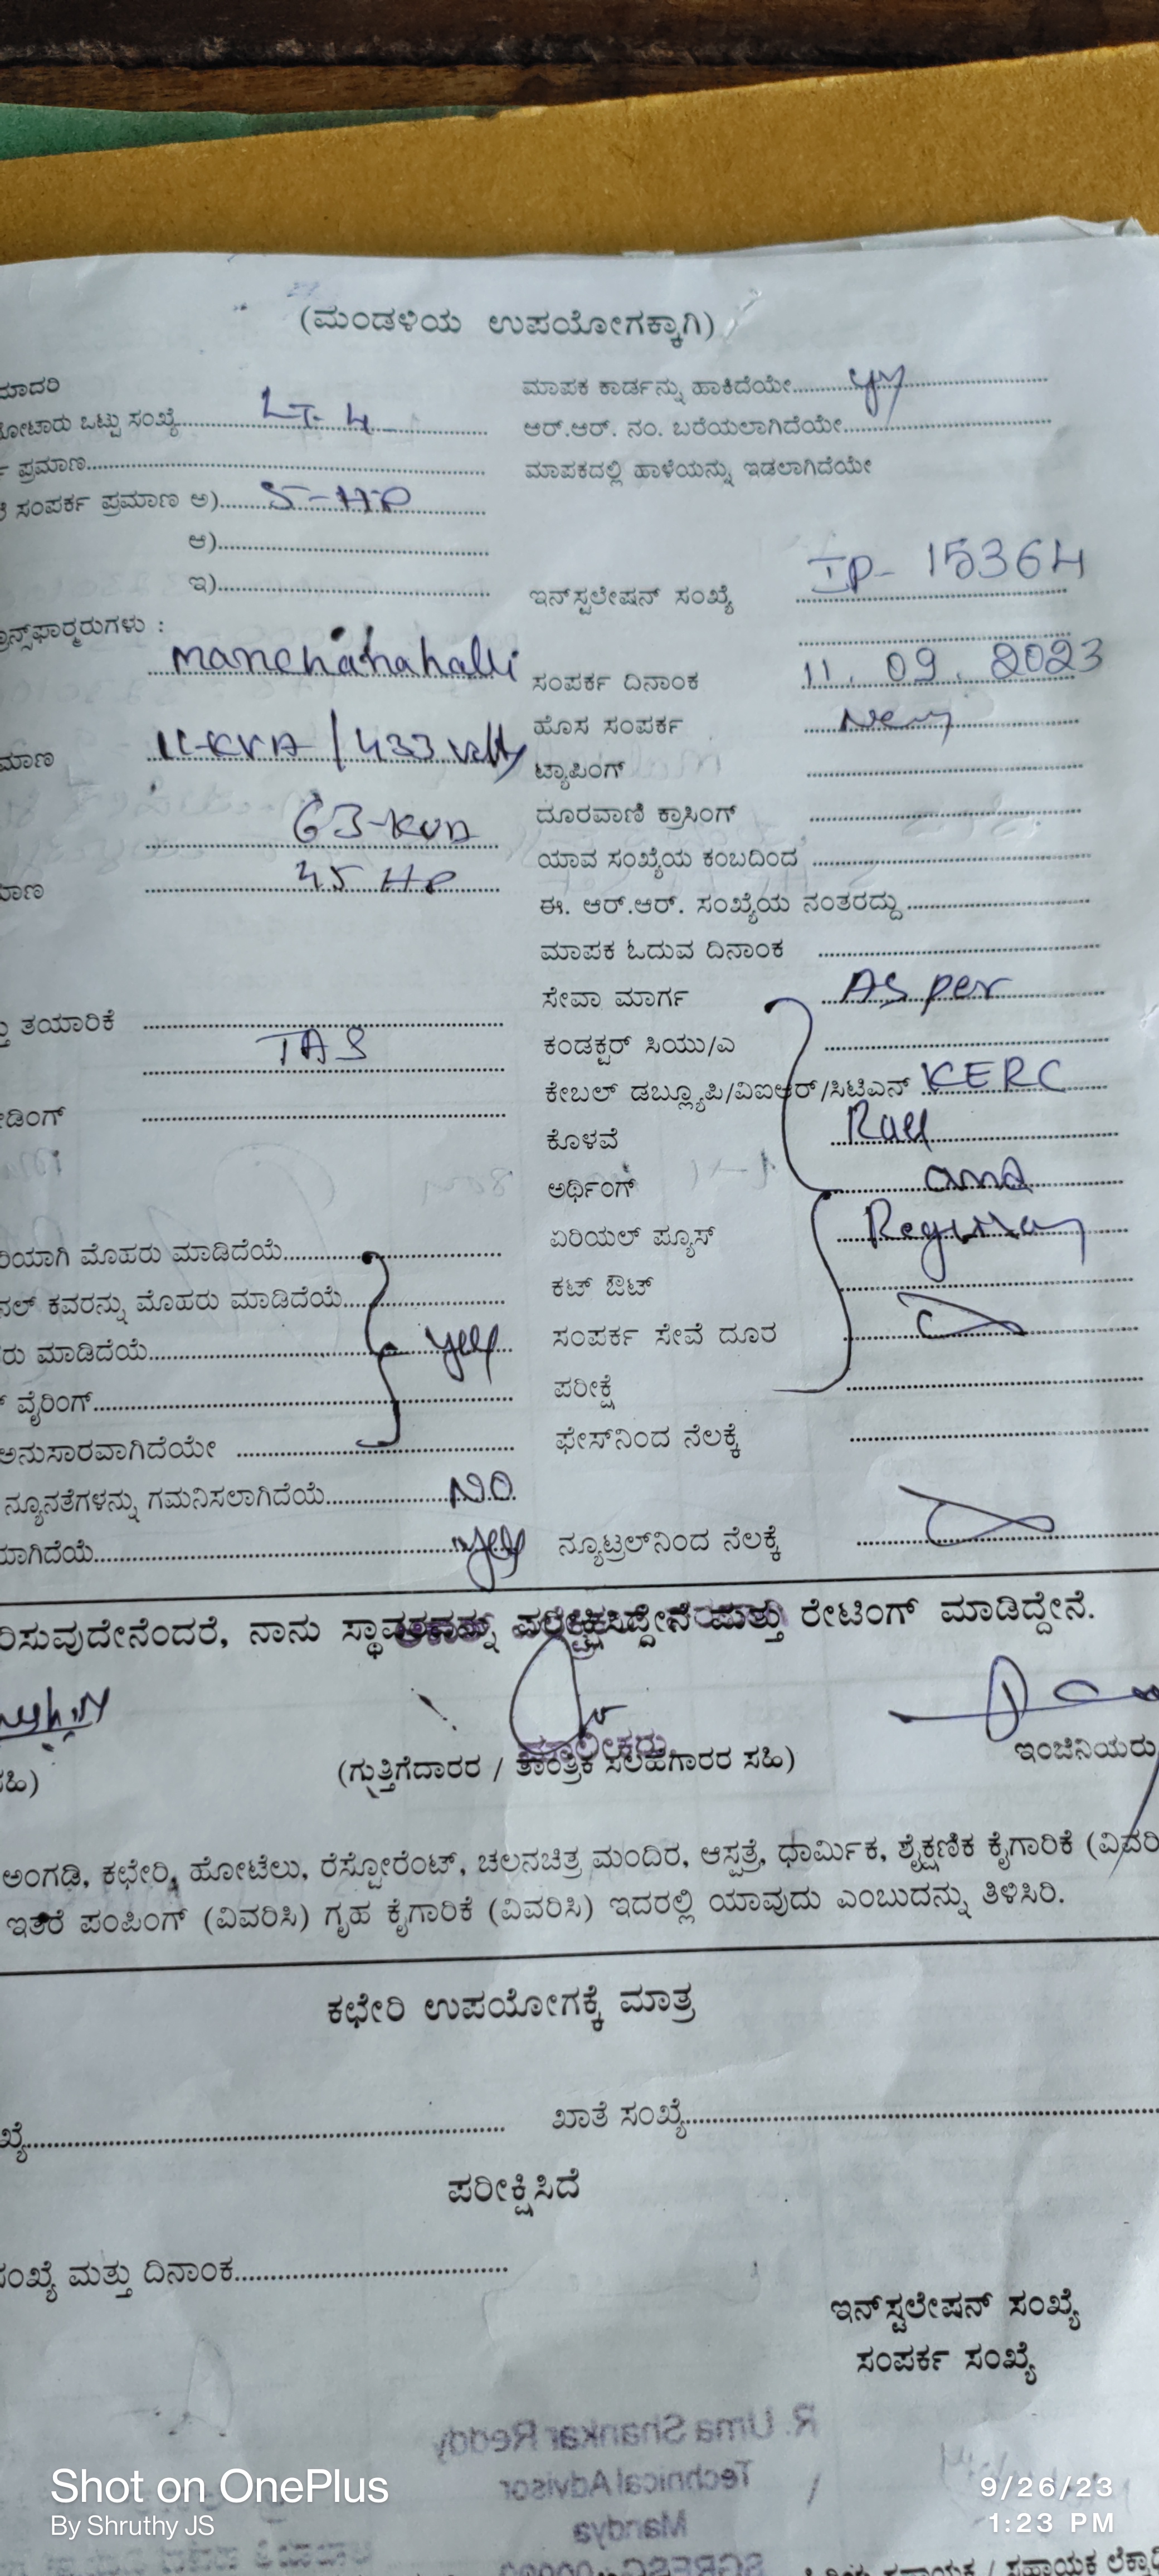 (ಮಂಡಳಿಯ ಉಪಯೋಗಕ್ಕಾಗಿ)
ಮಾದರಿ
ಮೋಟಾರು ಒಟ್ಟು ಸಂಖ್ಯೆ LT-4
ಪ್ರಮಾಣ
ಸಂಪರ್ಕ ಪ್ರಮಾಣ ಅ) 5-HP
ಆ)
ಇ)
manchanahalli
11-KVA/433 volts
63-KVA
45 HP
ತಯಾರಿಕೆ
TAS
ಮೊಹರು ಮಾಡಿದೆಯೆ
ಕವರನ್ನು ಮೊಹರು ಮಾಡಿದೆಯೆ
ಮಾಡಿದೆಯೆ yes
ವೈರಿಂಗ್
ಅನುಸಾರವಾಗಿದೆಯೇ
ನ್ಯೂನತೆಗಳನ್ನು ಗಮನಿಸಲಾಗಿದೆಯೆ NO
yes
ಮಾಪಕ ಕಾರ್ಡನ್ನು ಹಾಕಿದೆಯೇ
ಆರ್.ಆರ್. ನಂ. ಬರೆಯಲಾಗಿದೆಯೇ
ಮಾಪಕದಲ್ಲಿ ಹಾಳೆಯನ್ನು ಇಡಲಾಗಿದೆಯೇ
ಇನ್‌ಸ್ಟಲೇಷನ್ ಸಂಖ್ಯೆ IP-15364
ಸಂಪರ್ಕ ದಿನಾಂಕ 11.09.2023
ಹೊಸ ಸಂಪರ್ಕ New
ಟ್ಯಾಪಿಂಗ್
ದೂರವಾಣಿ ಕ್ರಾಸಿಂಗ್
ಯಾವ ಸಂಖ್ಯೆಯ ಕಂಬದಿಂದ
ಈ. ಆರ್.ಆರ್. ಸಂಖ್ಯೆಯ ನಂತರದ್ದು
ಮಾಪಕ ಓದುವ ದಿನಾಂಕ
ಸೇವಾ ಮಾರ್ಗ As per
ಕಂಡಕ್ಟರ್ ಸಿಯು/ಎ
ಕೇಬಲ್ ಡಬ್ಲ್ಯೂಪಿ/ವಿಐಆರ್/ಸಿಟಿಎನ್ KERC
ಕೊಳವೆ
ಅರ್ಥಿಂಗ್ and
ಏರಿಯಲ್ ಪ್ಯೂಸ್
ಕಟ್ ಔಟ್
ಸಂಪರ್ಕ ಸೇವೆ ದೂರ
ಪರೀಕ್ಷೆ
ಫೇಸ್‌ನಿಂದ ನೆಲಕ್ಕೆ
ನ್ಯೂಟ್ರಲ್‌ನಿಂದ ನೆಲಕ್ಕೆ
ನಾನು ಸ್ಥಾವರವನ್ನು ಪರೀಕ್ಷಿಸಿದ್ದೇನೆ ಮತ್ತು ರೇಟಿಂಗ್ ಮಾಡಿದ್ದೇನೆ.
(ಗುತ್ತಿಗೆದಾರರ / ತಾಂತ್ರಿಕ ಸಲಹೆಗಾರರ ಸಹಿ)
ಇಂಜಿನಿಯರು
ಅಂಗಡಿ, ಕಛೇರಿ, ಹೋಟೆಲು, ರೆಸ್ಟೋರೆಂಟ್, ಚಲನಚಿತ್ರ ಮಂದಿರ, ಆಸ್ಪತ್ರೆ, ಧಾರ್ಮಿಕ, ಶೈಕ್ಷಣಿಕ ಕೈಗಾರಿಕೆ
ಇತರೆ ಪಂಪಿಂಗ್ (ವಿವರಿಸಿ) ಗೃಹ ಕೈಗಾರಿಕೆ (ವಿವರಿಸಿ) ಇದರಲ್ಲಿ ಯಾವುದು ಎಂಬುದನ್ನು ತಿಳಿಸಿರಿ.
ಕಛೇರಿ ಉಪಯೋಗಕ್ಕೆ ಮಾತ್ರ
ಖಾತೆ ಸಂಖ್ಯೆ
ಪರೀಕ್ಷಿಸಿದೆ
ಸಂಖ್ಯೆ ಮತ್ತು ದಿನಾಂಕ
ಇನ್‌ಸ್ಟಲೇಷನ್ ಸಂಖ್ಯೆ
ಸಂಪರ್ಕ ಸಂಖ್ಯೆ
R. Uma Shankar Reddy
Technical Advisor
Mandya
Shot on OnePlus
By Shruthy JS
9/26/23
1:23 PM